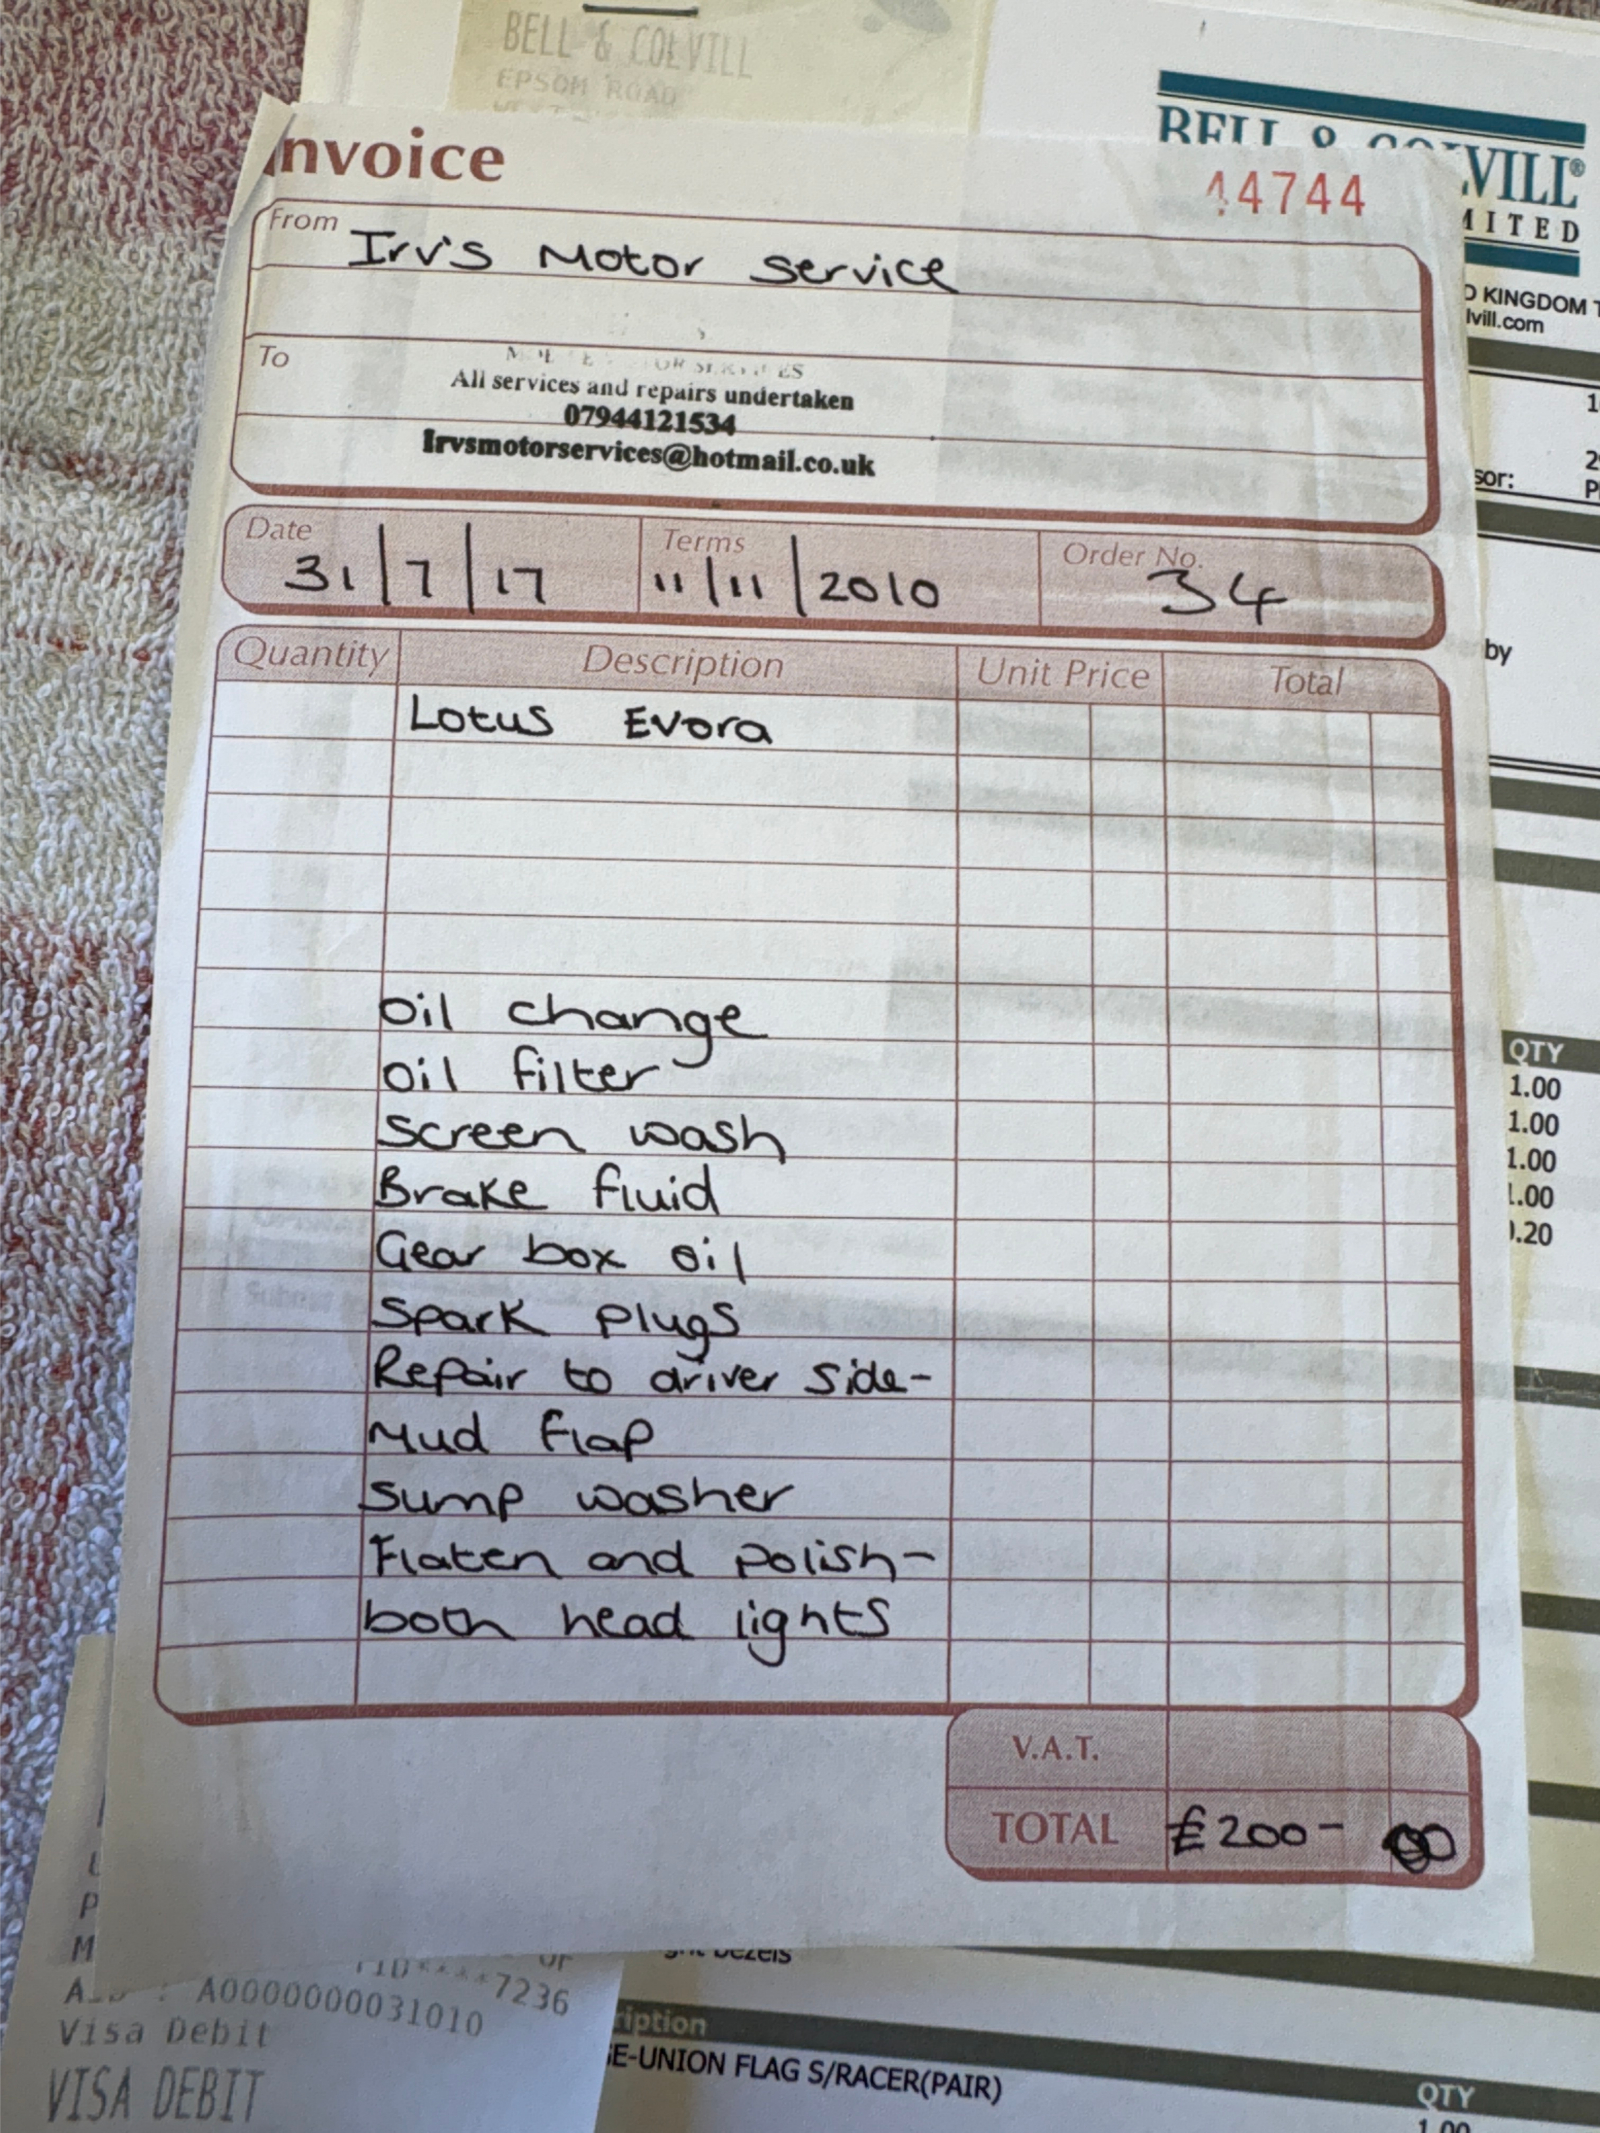 BELL & COLVILL
EPSOM ROAD
BELL & COLVILL®
LIMITED
KINGDOM
lvill.com
nvoice
44744
From Irv's Motor Service
To
All services and repairs undertaken
07944121534
Irvsmotorservices@hotmail.co.uk
sor:
by
Date Terms Order No.
31/7/17 11/11/2010 34
Quantity Description Unit Price Total
Lotus Evora
Oil change
Oil filter
Screen wash
Brake fluid
Gear box oil
Spark plugs
Repair to driver side-
Mud flap
Sump washer
Flaten and polish-
both head lights
V.A.T.
TOTAL £200- 00
QTY
1.00
1.00
1.00
1.00
.20
bezels
****7236
: A0000000031010
Visa Debit
VISA DEBIT
ription
GE-UNION FLAG S/RACER(PAIR)
QTY
1.00